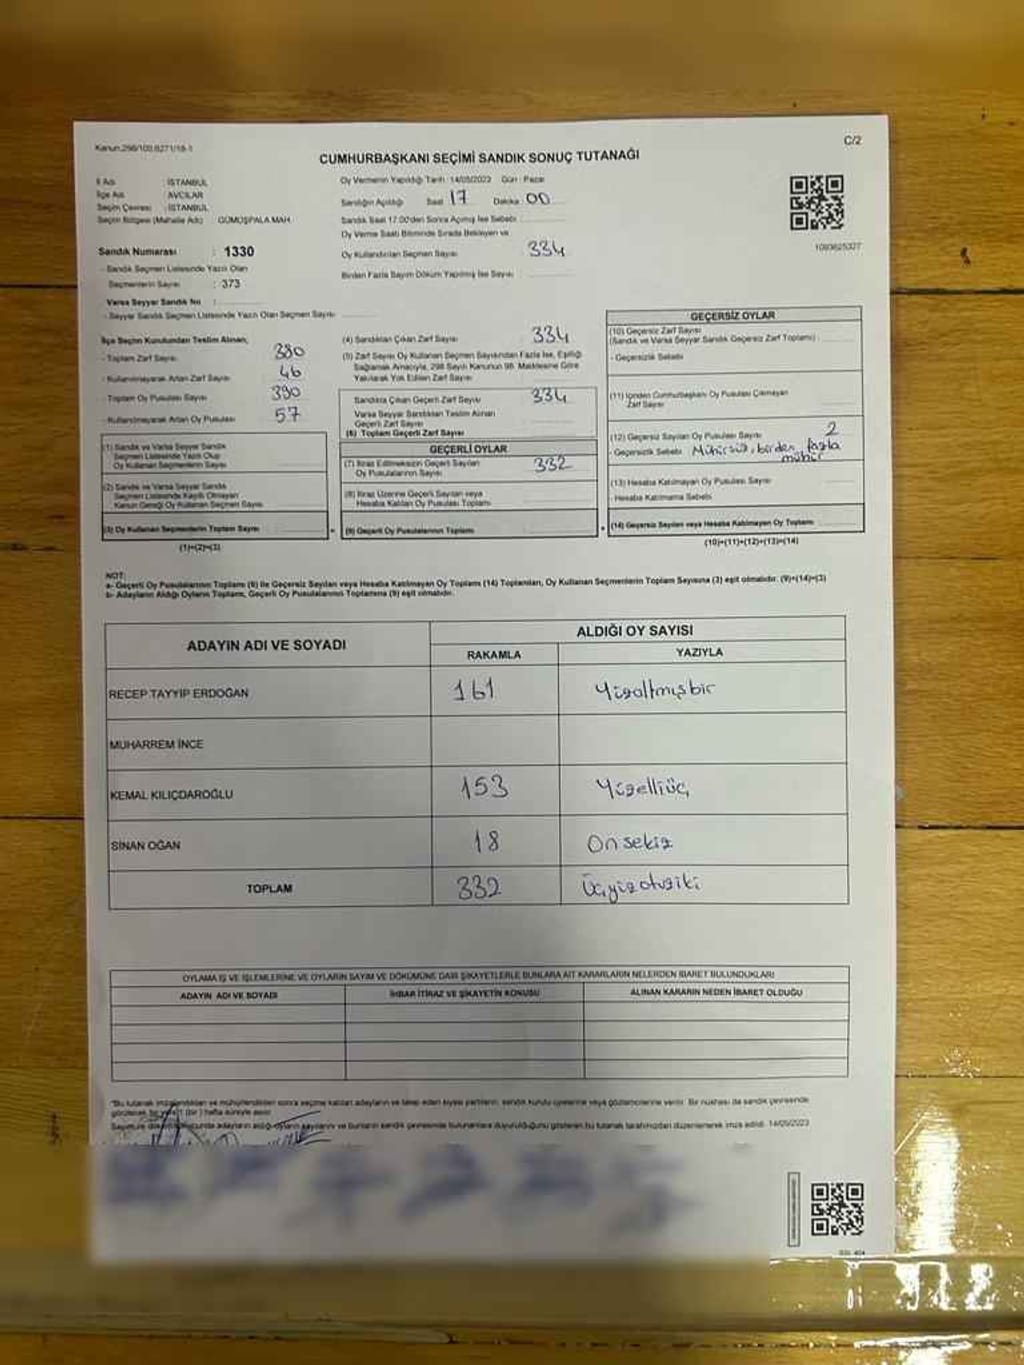 Kanun:298/103,6271/18-1
C/2
CUMHURBAŞKANI SEÇİMİ SANDIK SONUÇ TUTANAĞI
İl Adı : İSTANBUL
İlçe Adı : AVCILAR
Seçim Çevresi : İSTANBUL
Seçim Bölgesi (Mahalle Adı) : GÜMÜŞPALA MAH.
Oy Vermenin Yapıldığı Tarih :14/05/2023 Gün : Pazar
Sandığın Açıldığı Saat 17 Dakika : 00
Sandık Saat 17:00'den Sonra Açılmış İse Sebebi :
Oy Verme Saati Bitiminde Sırada Bekleyen ve
Oy Kullandırılan Seçmen Sayısı : 334
Birden Fazla Sayım Döküm Yapılmış İse Sayısı :
Sandık Numarası : 1330
- Sandık Seçmen Listesinde Yazılı Olan
Seçmenlerin Sayısı : 373
Varsa Seyyar Sandık No :
- Seyyar Sandık Seçmen Listesinde Yazılı Olan Seçmen Sayısı :
İlçe Seçim Kurulundan Teslim Alınan;
- Toplam Zarf Sayısı 380
- Kullanılmayarak Artan Zarf Sayısı 46
- Toplam Oy Pusulası Sayısı 390
- Kullanılmayarak Artan Oy Pusulası 57
(1) Sandık ve Varsa Seyyar Sandık
Seçmen Listesinde Yazılı Olup
Oy Kullanan Seçmenlerin Sayısı
(2) Sandık ve Varsa Seyyar Sandık
Seçmen Listesinde Kayıtlı Olmayan
Kanun Gereği Oy Kullanan Seçmen Sayısı
(3) Oy Kullanan Seçmenlerin Toplam Sayısı
(1)+(2)=(3)
(4) Sandıktan Çıkan Zarf Sayısı 334
(5) Zarf Sayısı Oy Kullanan Seçmen Sayısından Fazla İse, Eşitliği
Sağlamak Amacıyla, 298 Sayılı Kanunun 98. Maddesine Göre
Yakılarak Yok Edilen Zarf Sayısı
Sandıkta Çıkan Geçerli Zarf Sayısı 334
Varsa Seyyar Sandıktan Teslim Alınan
Geçerli Zarf Sayısı
(6) Toplam Geçerli Zarf Sayısı
GEÇERLİ OYLAR
(7) İtiraz Edilmeksizin Geçerli Sayılan
Oy Pusulalarının Sayısı 332
(8) İtiraz Üzerine Geçerli Sayılan veya
Hesaba Katılan Oy Pusulası Toplamı
(9) Geçerli Oy Pusulalarının Toplamı
GEÇERSİZ OYLAR
(10) Geçersiz Zarf Sayısı
(Sandık ve Varsa Seyyar Sandık Geçersiz Zarf Toplamı)
- Geçersizlik Sebebi
(11) İçinden Cumhurbaşkanı Oy Pusulası Çıkmayan
Zarf Sayısı
(12) Geçersiz Sayılan Oy Pusulası Sayısı 2
- Geçersizlik Sebebi Mühürsüz, birden fazla
mühür
(13) Hesaba Katılmayan Oy Pusulası Sayısı
- Hesaba Katılmama Sebebi
(14) Geçersiz Sayılan veya Hesaba Katılmayan Oy Toplamı
(10)+(11)+(12)+(13)=(14)
NOT:
a- Geçerli Oy Pusulalarının Toplamı (9) ile Geçersiz Sayılan veya Hesaba Katılmayan Oy Toplamı (14) Toplamları, Oy Kullanan Seçmenlerin Toplam Sayısına (3) eşit olmalıdır. (9)+(14)=(3)
b- Adayların Aldığı Oyların Toplamı, Geçerli Oy Pusulalarının Toplamına (9) eşit olmalıdır.
ADAYIN ADI VE SOYADI
ALDIĞI OY SAYISI
RAKAMLA YAZIYLA
RECEP TAYYİP ERDOĞAN 161 Yüzaltmışbir
MUHARREM İNCE
KEMAL KILIÇDAROĞLU 153 Yüzelliüç
SİNAN OĞAN 18 Onsekiz
TOPLAM 332 Üçyüzotuziki
OYLAMA İŞ VE İŞLEMLERİNE VE OYLARIN SAYIM VE DÖKÜMÜNE DAİR ŞİKAYETLERLE BUNLARA AİT KARARLARIN NELERDEN İBARET BULUNDUKLARI
ADAYIN ADI VE SOYADI İHBAR İTİRAZ VE ŞİKAYETİN KONUSU ALINAN KARARIN NEDEN İBARET OLDUĞU
"Bu tutanak imzalandıktan ve mühürlendikten sonra seçime katılan adayların ve talep eden siyasi partilerin, sandık kurulu üyelerine veya gözlemcilerine verilir. Bir nüshası da sandık çevresinde
görülecek bir yere 1 (bir) hafta süreyle asılır.
14/05/2023